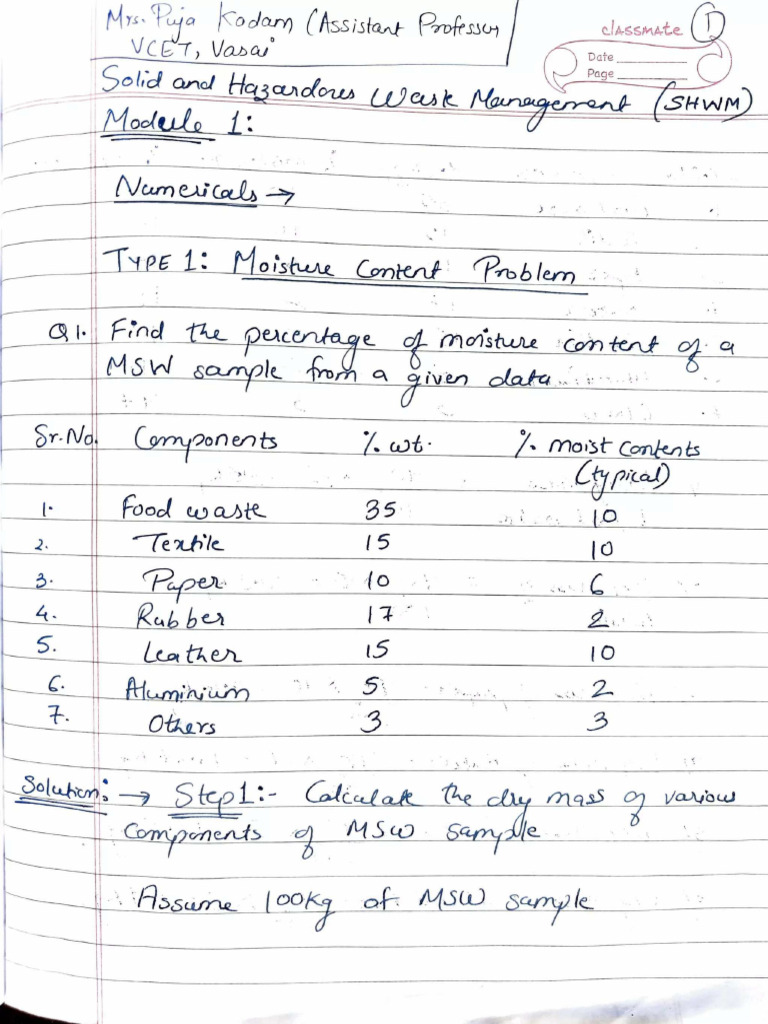 Mrs. Puja Kadam (Assistant Professor
VCET, Vasai
classmate 1
Date
Page
Solid and Hazardous Waste Management (SHWM)
Module 1:
Numericals →
TYPE 1: Moisture Content Problem
Q1. Find the percentage of moisture content of a
MSW sample from a given data.
Sr.No. Components % wt. % moist contents
(typical)
1. Food waste 35 10
2. Textile 15 10
3. Paper 10 6
4. Rubber 17 2
5. Leather 15 10
6. Aluminium 5 2
7. Others 3 3
Solution: → Step1:- Calculate the dry mass of various
components of MSW sample
Assume 100kg of MSW sample